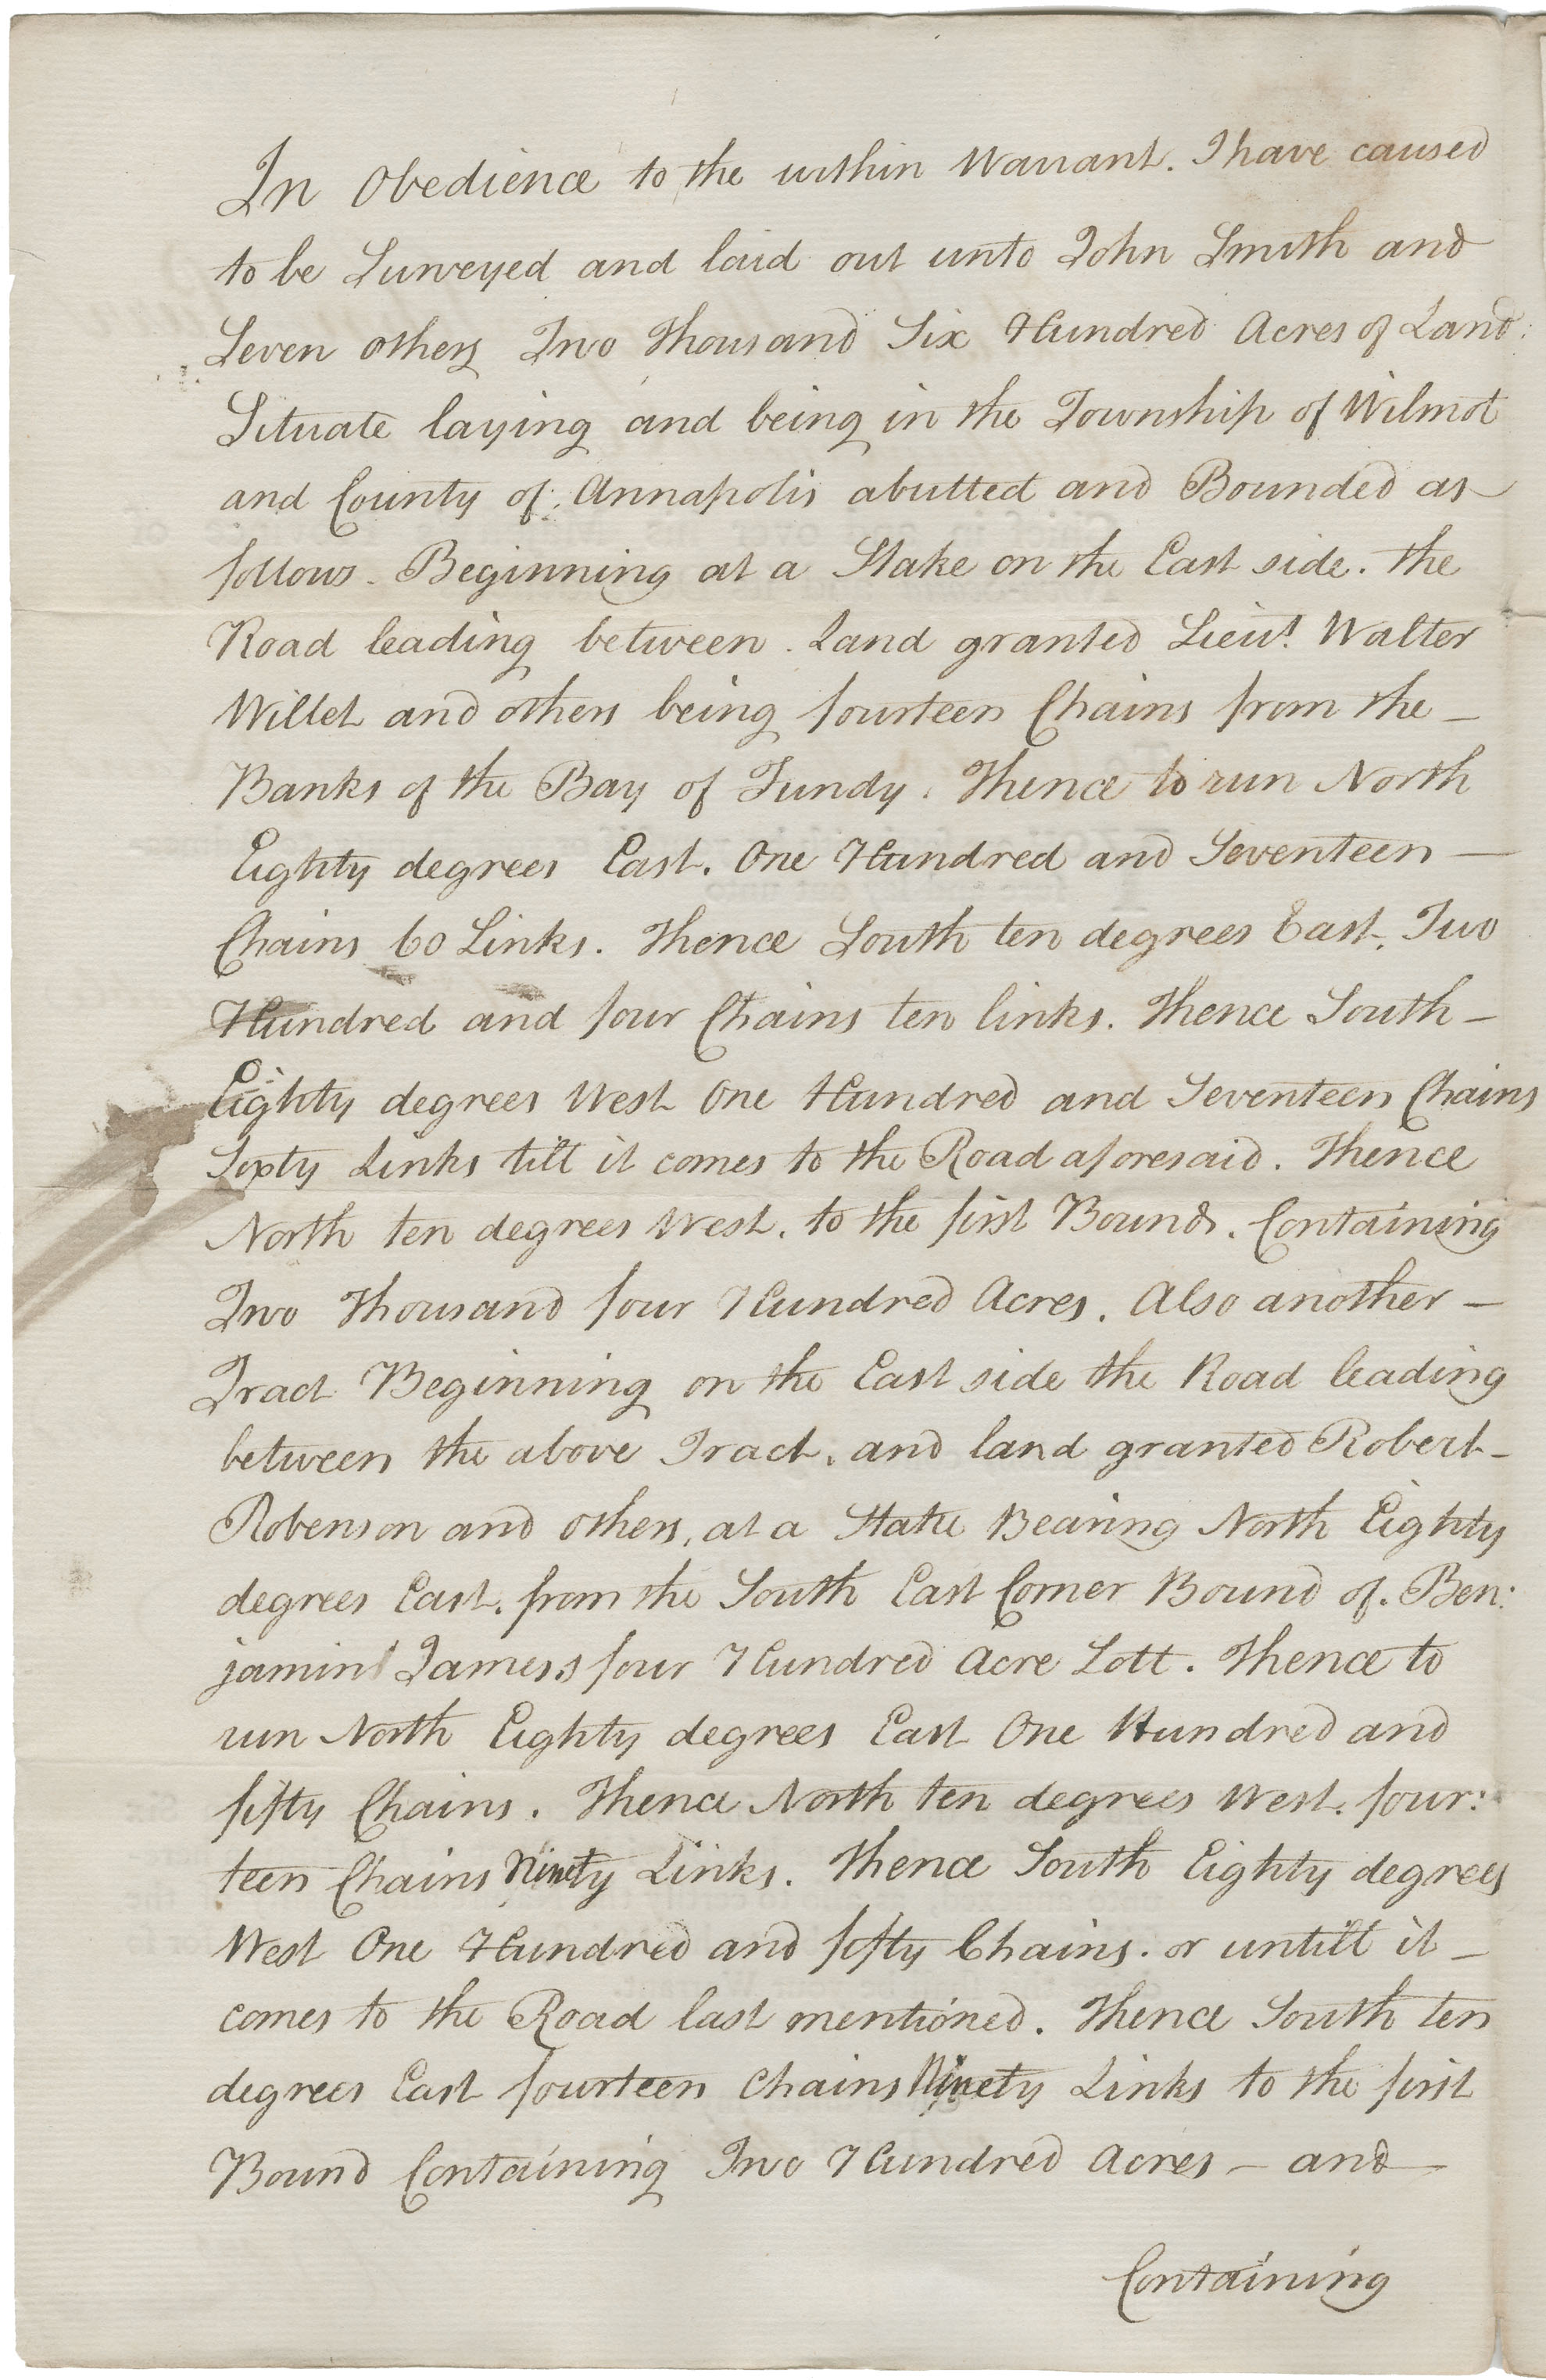 In Obedience to the within Warrant. I have caused
to be Surveyed and laid out unto John Smith and
Seven others Two Thousand Six Hundred Acres of Land.
Situate laying and being in the Township of Wilmot
and County of Annapolis abutted and Bounded as
follows. Beginning at a Stake on the East side. the
Road leading between. Land granted Lieut. Walter
Willet and others being fourteen Chains from the –
Banks of the Bay of Fundy. Thence to run North
Eighty degrees East. One Hundred and Seventeen —
Chains 60 Links. Thence South ten degrees East. Two
Hundred and four Chains ten links. Thence South –
Eighty degrees West One Hundred and Seventeen Chains
Sixty Links till it comes to the Road aforesaid. Thence
North ten degrees West. to the first Bounds. Containing
Two Thousand four Hundred Acres. Also another –
Tract Beginning on the East side the Road leading
between the above Tract. and land granted Robert –
Robenson and others, at a Stake Bearing North Eighty
degrees East. from the South East Corner Bound of. Ben:
jamin Jamess four Hundred Acre Lott. Thence to
run North Eighty degrees East One Hundred and
fifty Chains. Thence North ten degrees West. four:
teen Chains Ninety Links. Thence South Eighty degrees
West One Hundred and fifty Chains. or untill it –
comes to the Road last mentioned. Thence South ten
degrees East fourteen Chains Ninety Links to the first
Bound Containing Two Hundred Acres – and
Containing